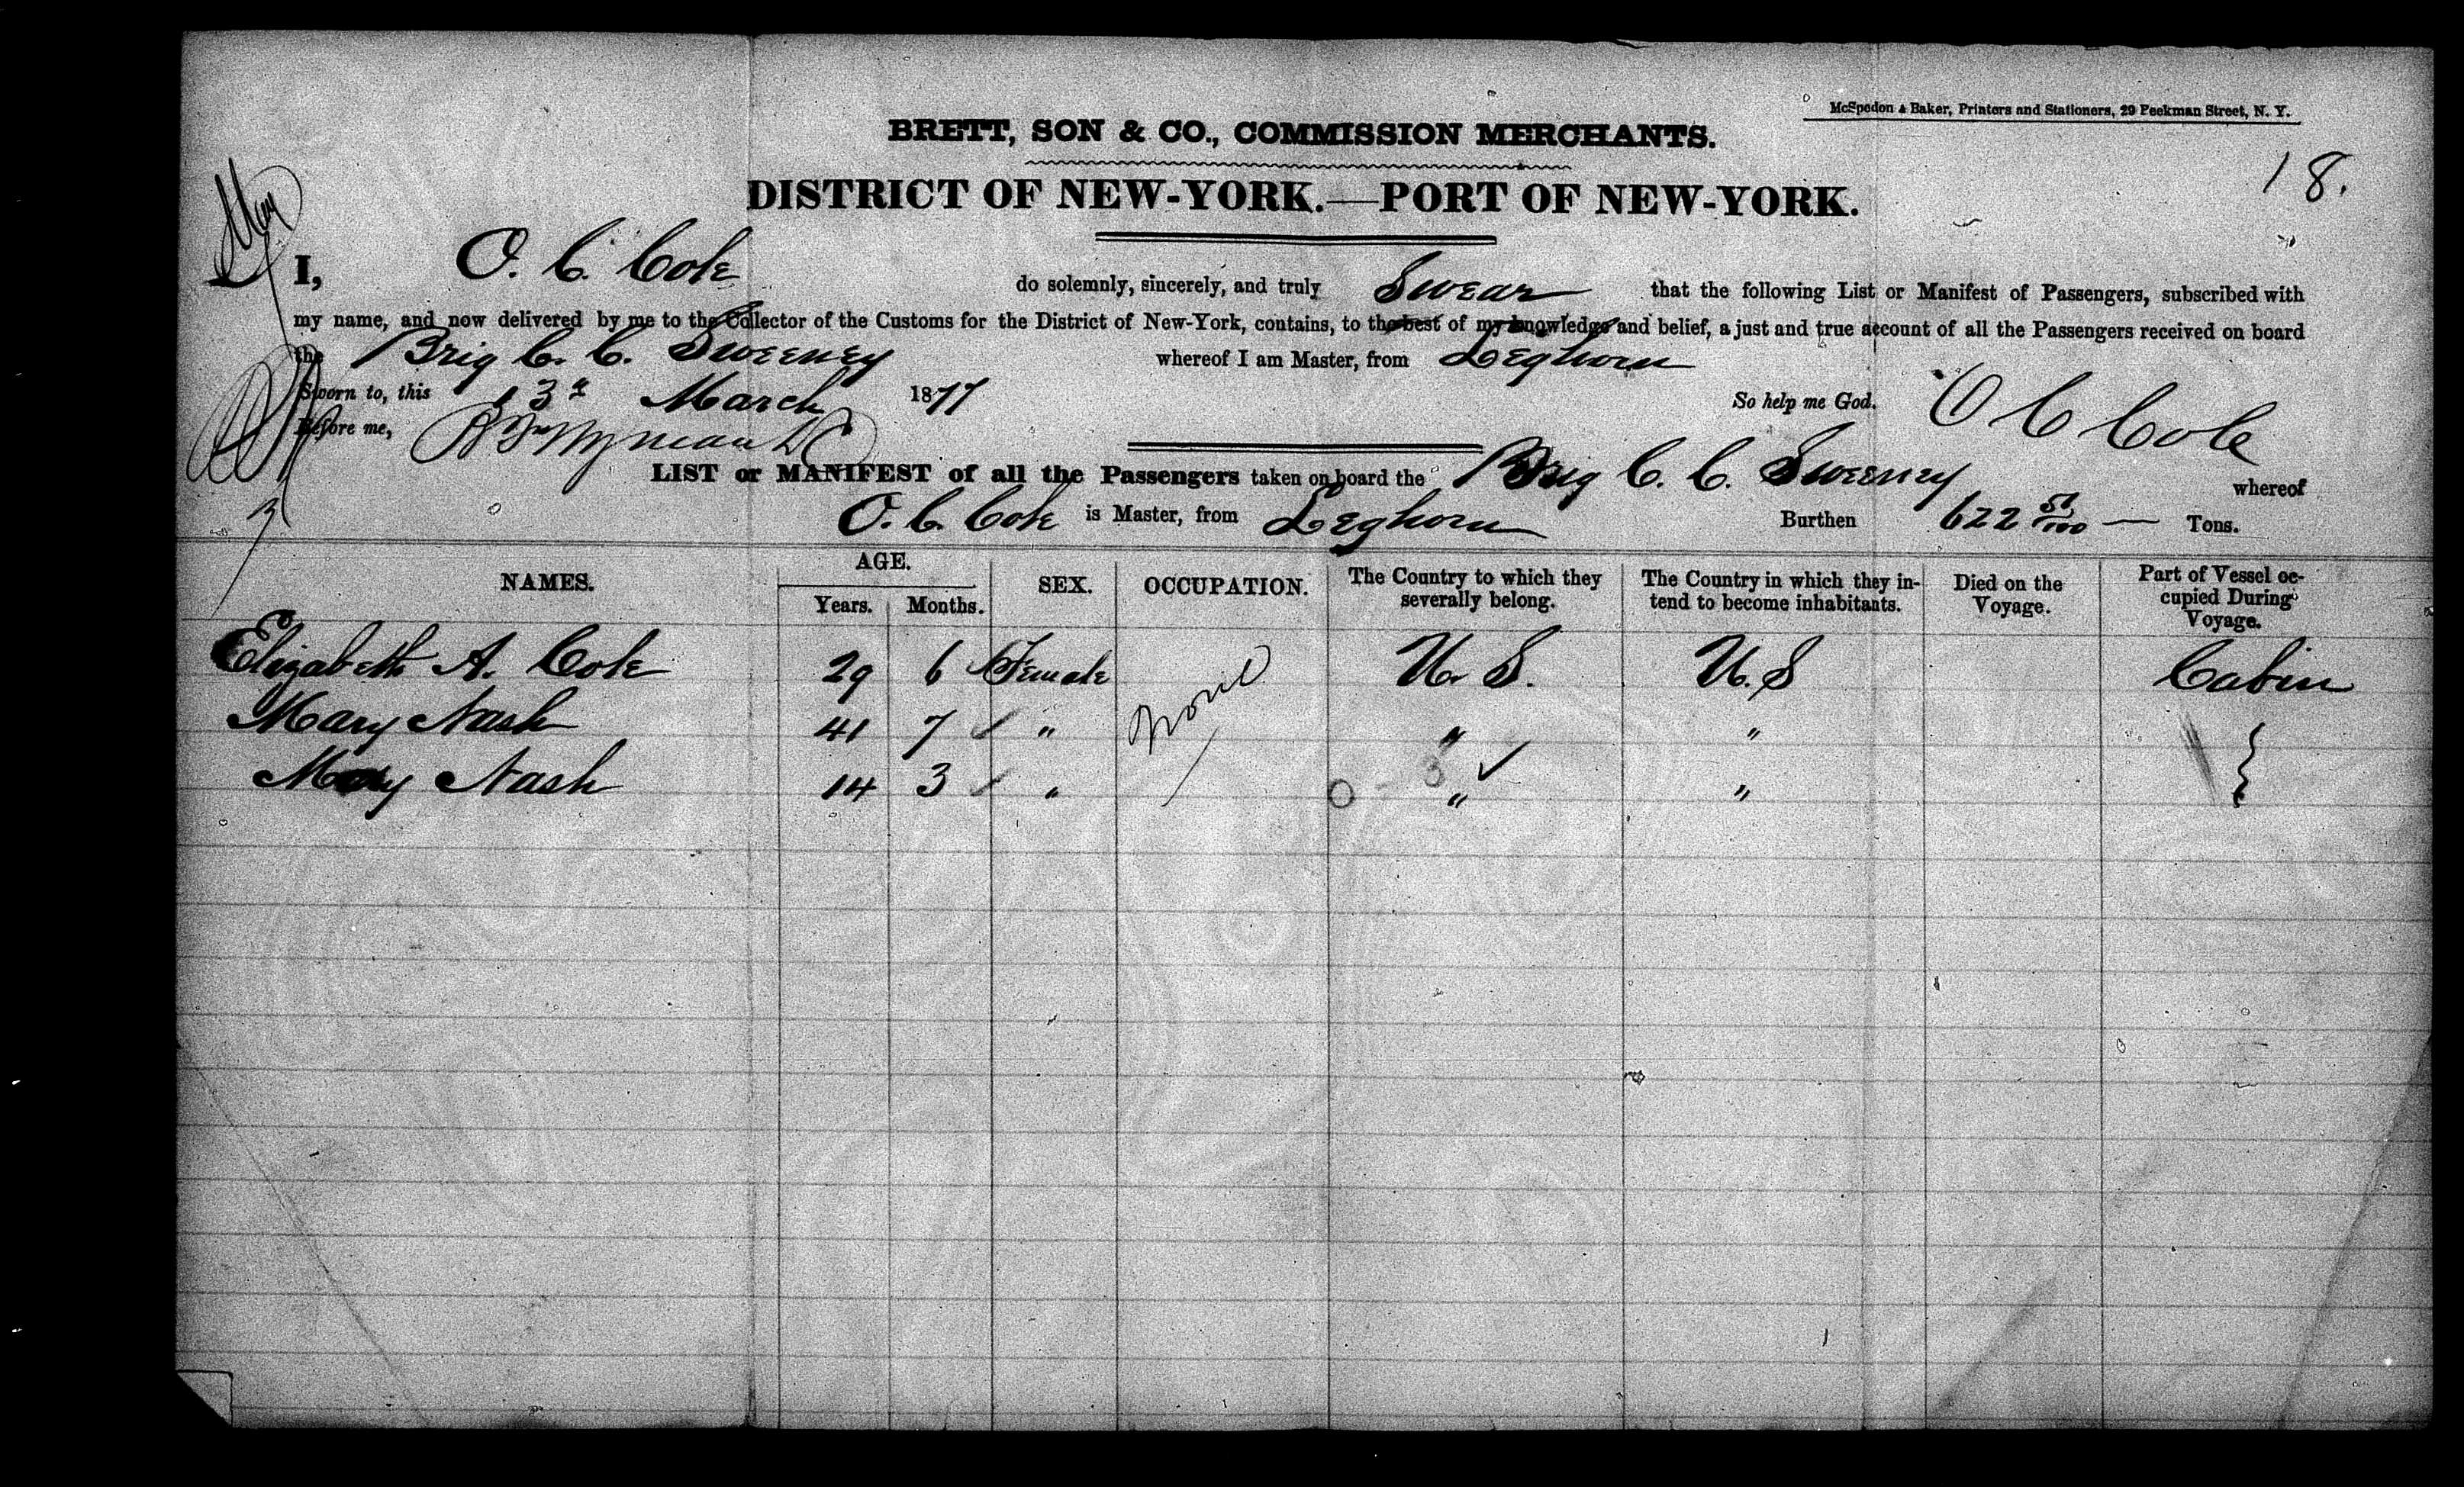 McSpedon & Baker, Printers and Stationers, 29 Beekman Street, N. Y.
BRETT, SON & CO., COMMISSION MERCHANTS.
18.
DISTRICT OF NEW-YORK.—PORT OF NEW-YORK.
I, O. C. Cole do solemnly, sincerely, and truly Swear that the following List or Manifest of Passengers, subscribed with
my name, and now delivered by me to the Collector of the Customs for the District of New-York, contains, to the best of my knowledge and belief, a just and true account of all the Passengers received on board
the Brig C. C. Sweeney whereof I am Master, from Leghorn
Sworn to, this 13th March 1877 So help me God. O C Cole
Before me,
LIST or MANIFEST of all the Passengers taken on board the Brig C. C. Sweeney whereof
O. C. Cole is Master, from Leghorn Burthen 622 51/100 Tons.
NAMES. AGE. Years. Months. SEX. OCCUPATION. The Country to which they severally belong. The Country in which they intend to become inhabitants. Died on the Voyage. Part of Vessel occupied During Voyage.
Elizabeth A. Cole 29 6 Female None U. S. U. S Cabin
Mary Nash 41 7 " " "
Mary Nash 14 3 " " "